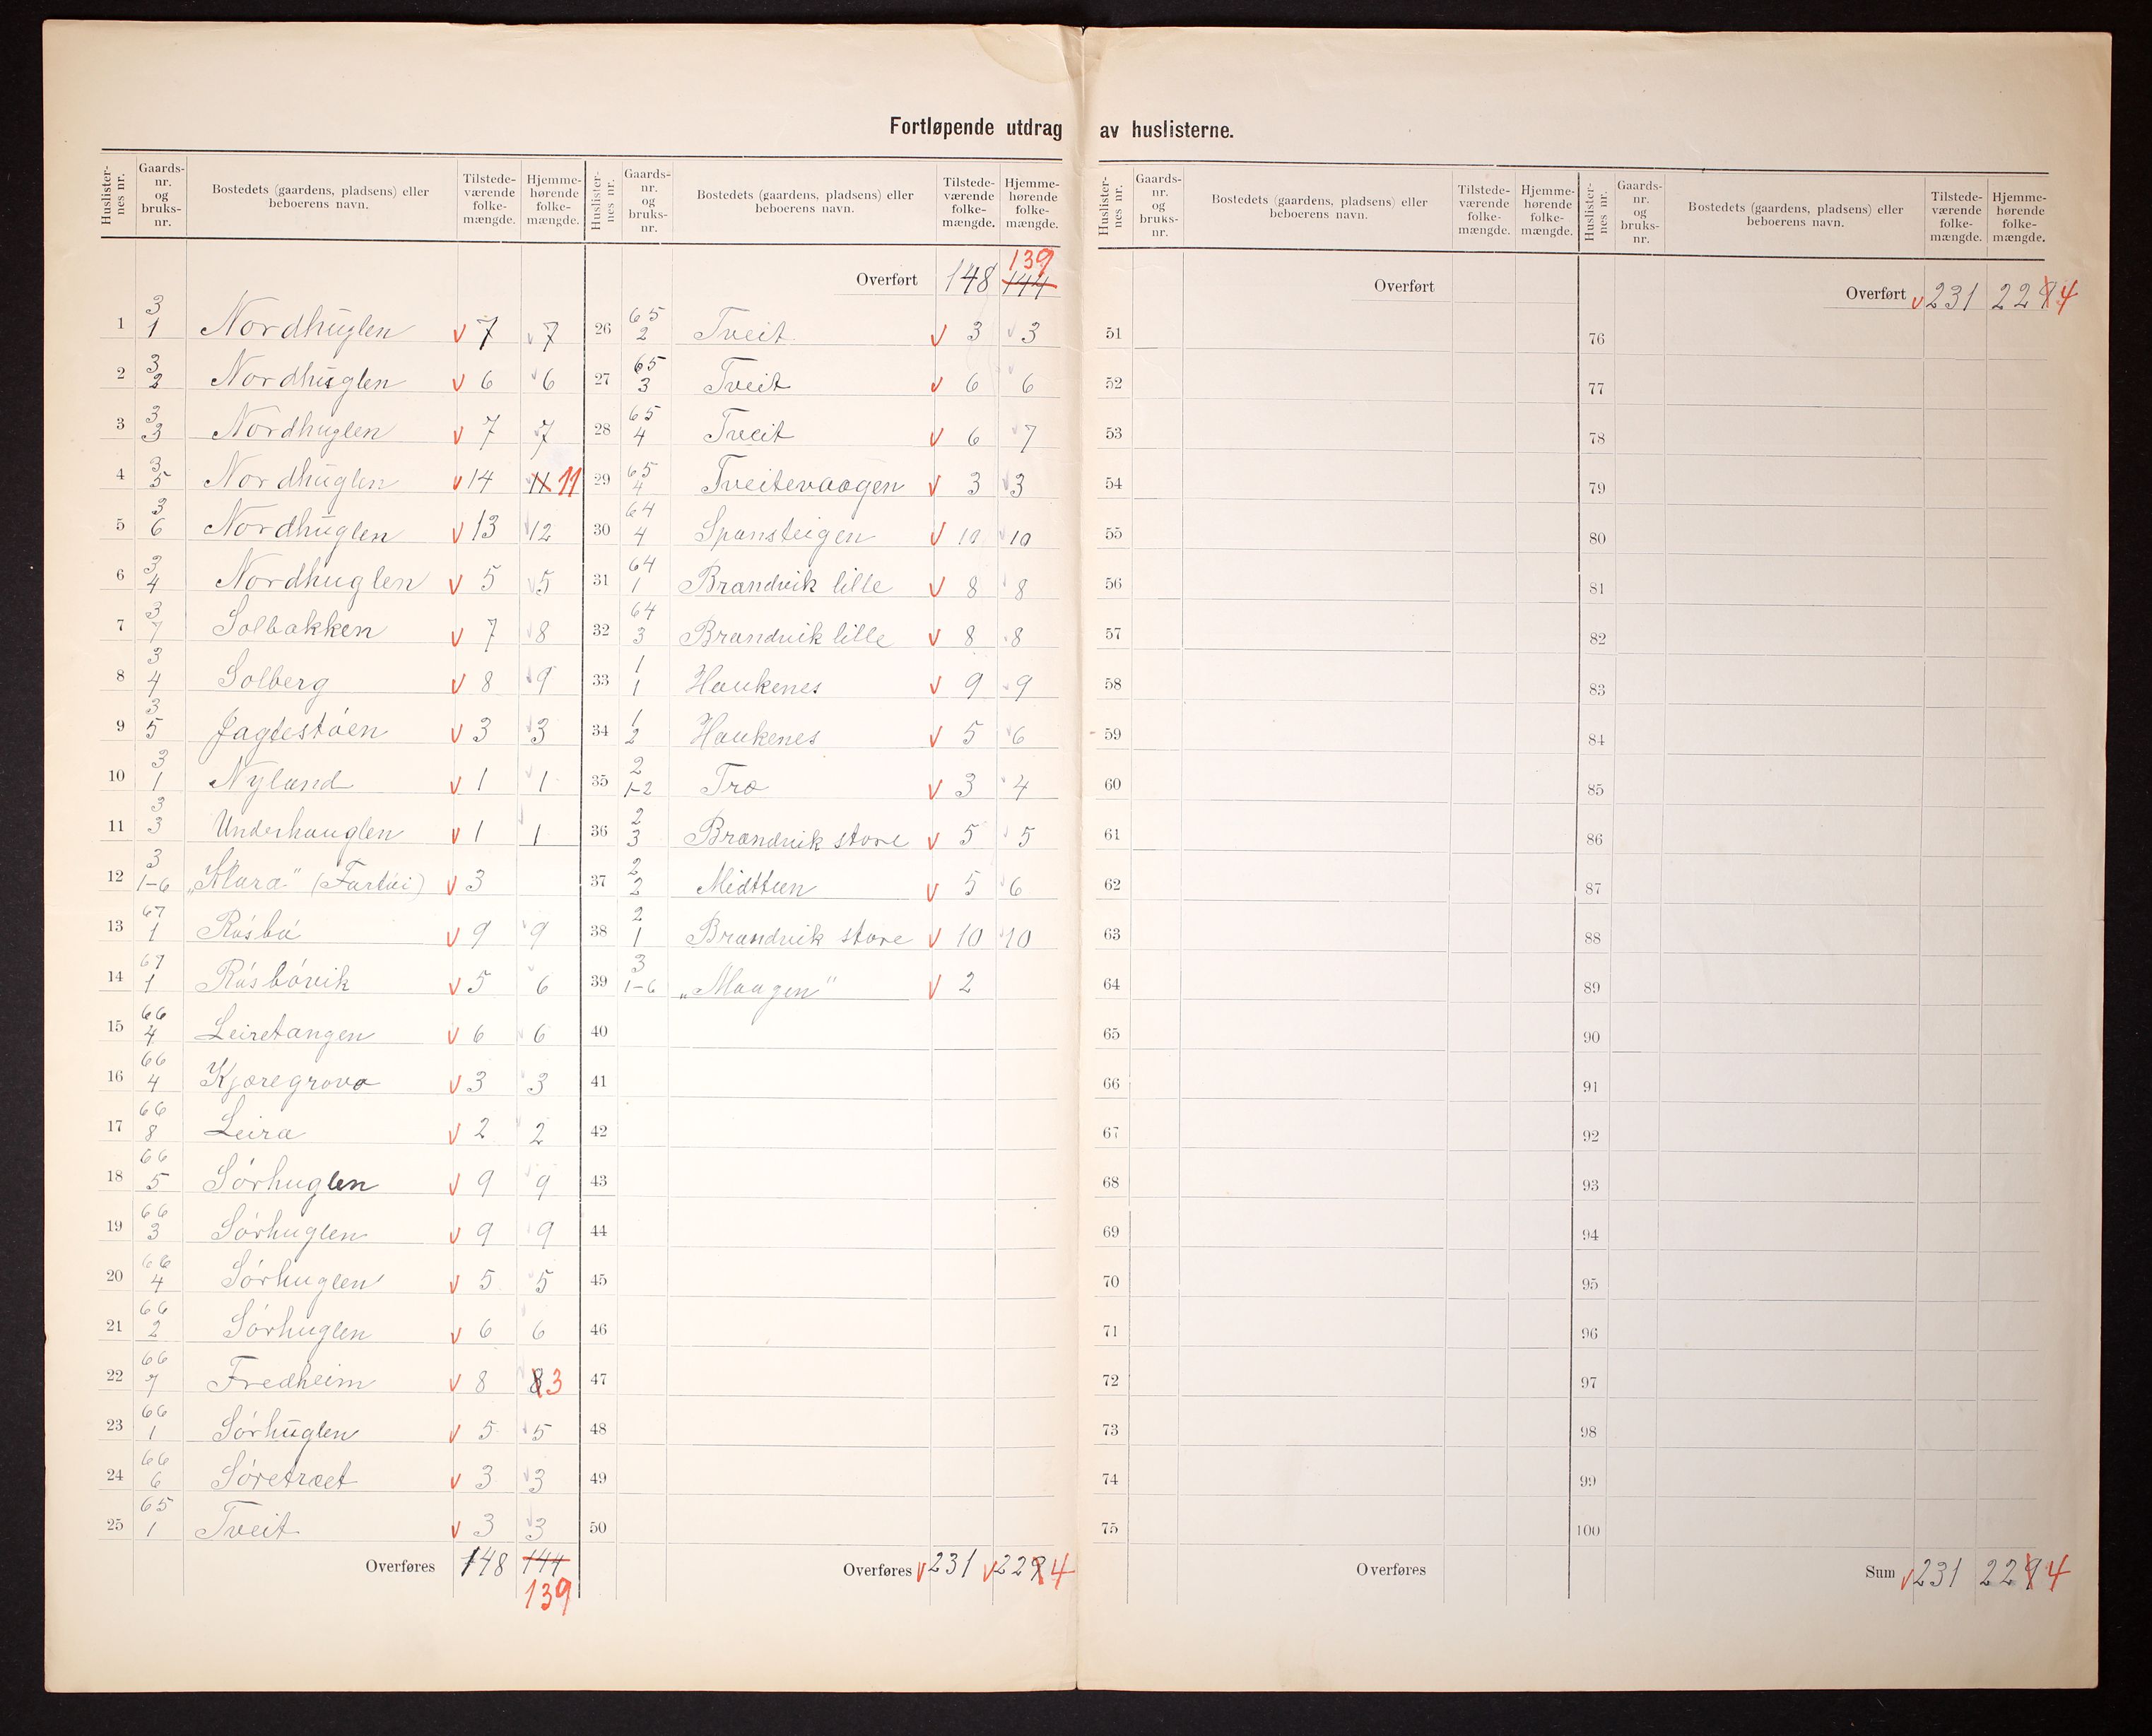 Fortløpende utdrag av huslisterne.
Huslisternes nr. Gaardsnr. og bruksnr. Bostedets (gaardens, pladsens) eller beboerens navn. Tilstedeværende folkemængde. Hjemmehørende folkemængde.
1 3/1 Nordhuglen 7 7
2 3/2 Nordhuglen 6 6
3 3/3 Nordhuglen 7 7
4 3/5 Nordhuglen 14 11 11
5 3/6 Nordhuglen 13 12
6 3/4 Nordhuglen 5 5
7 3/7 Solbakken 7 8
8 3/4 Solberg 8 9
9 3/5 Jagtestöen 3 3
10 3/1 Nyland 1 1
11 3/3 Underhauglen 1 1
12 3/1-6 „Klara" (Fartöi) 3
13 67/1 Rösbö 9 9
14 67/1 Rösbövik 5 6
15 66/4 Leiretangen 6 6
16 66/4 Kjæregrova 3 3
17 66/8 Leira 2 2
18 66/5 Sörhuglen 9 9
19 66/3 Sörhuglen 9 9
20 66/4 Sörhuglen 5 5
21 66/2 Sörhuglen 6 6
22 66/7 Fredheim 8 8 3
23 66/1 Sörhuglen 5 5
24 66/6 Söretræet 3 3
25 65/1 Tveit 3 3
Overføres 148 144
139
Huslisternes nr. Gaardsnr. og bruksnr. Bostedets (gaardens, pladsens) eller beboerens navn. Tilstedeværende folkemængde. Hjemmehørende folkemængde.
139
Overført 148 144
26 65/2 Tveit 3 3
27 65/3 Tveit 6 6
28 65/4 Tveit 6 7
29 65/4 Tveitevaagen 3 3
30 64/4 Spansteigen 10 10
31 64/1 Brandvik lille 8 8
32 64/3 Brandvik lille 8 8
33 1/1 Haukenes 9 9
34 1/2 Haukenes 5 6
35 2/1-2 Tro 3 4
36 2/3 Brandvik store 5 5
37 2/2 Midttun 5 6
38 2/1 Brandvik store 10 10
39 3/1-6 „Maagen" 2
40
41
42
43
44
45
46
47
48
49
50
Overføres 231 229 4
Huslisternes nr. Gaardsnr. og bruksnr. Bostedets (gaardens, pladsens) eller beboerens navn. Tilstedeværende folkemængde. Hjemmehørende folkemængde.
Overført
51
52
53
54
55
56
57
58
59
60
61
62
63
64
65
66
67
68
69
70
71
72
73
74
75
Overføres
Huslisternes nr. Gaardsnr. og bruksnr. Bostedets (gaardens, pladsens) eller beboerens navn. Tilstedeværende folkemængde. Hjemmehørende folkemængde.
Overført 231 229 4
76
77
78
79
80
81
82
83
84
85
86
87
88
89
90
91
92
93
94
95
96
97
98
99
100
Sum 231 229 4